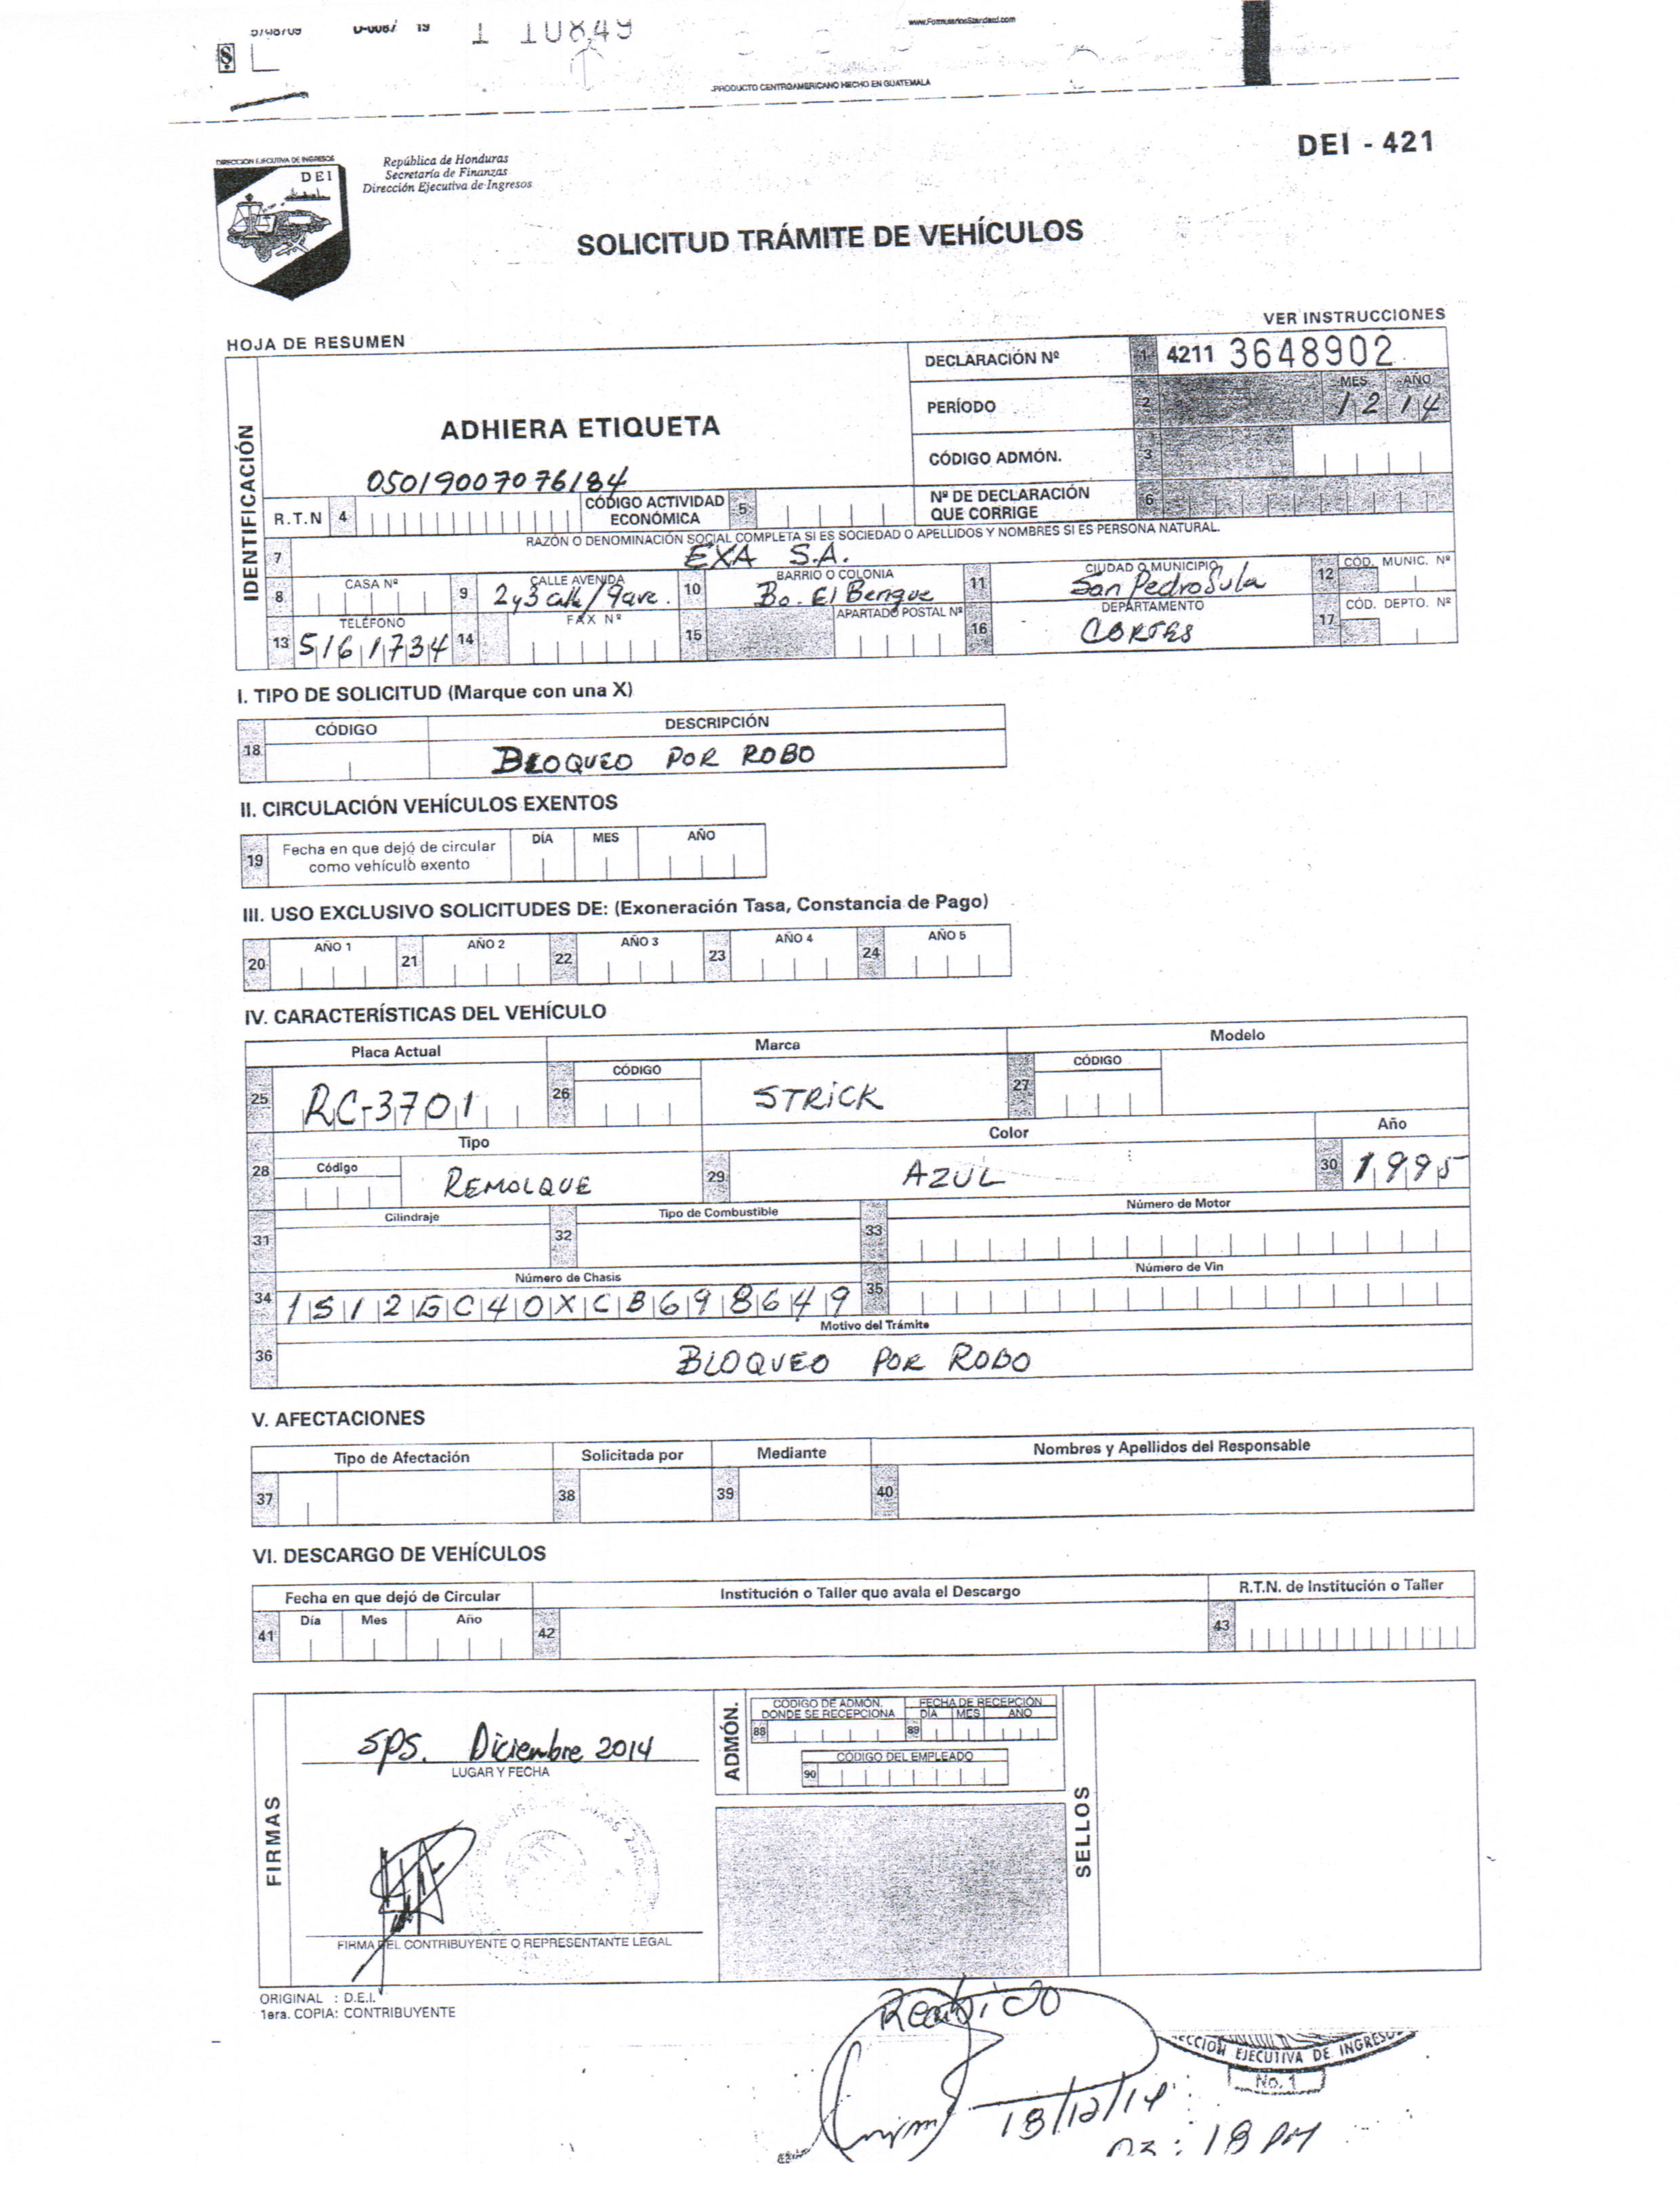 www.FormulariosStandard.com
D-0087 19 1 110849
PRODUCTO CENTROAMERICANO HECHO EN GUATEMALA
DEI - 421
DIRECCIÓN EJECUTIVA DE INGRESOS
DEI
República de Honduras
Secretaría de Finanzas
Dirección Ejecutiva de Ingresos
SOLICITUD TRÁMITE DE VEHÍCULOS
VER INSTRUCCIONES
HOJA DE RESUMEN
IDENTIFICACIÓN
DECLARACIÓN Nº 1 4211 3648902
MES AÑO
PERÍODO 2 12 14
ADHIERA ETIQUETA
CÓDIGO ADMÓN. 3
05019007076184
R.T.N 4 CÓDIGO ACTIVIDAD ECONÓMICA 5 Nº DE DECLARACIÓN QUE CORRIGE 6
RAZÓN O DENOMINACIÓN SOCIAL COMPLETA SI ES SOCIEDAD O APELLIDOS Y NOMBRES SI ES PERSONA NATURAL.
7 EXA S.A.
CASA Nº CALLE AVENIDA BARRIO O COLONIA CIUDAD O MUNICIPIO CÓD. MUNIC. Nº
8 9 2 y 3 calle/9 ave. 10 Bo. El Benque 11 San Pedro Sula 12
TELÉFONO FAX Nº APARTADO POSTAL Nº DEPARTAMENTO CÓD. DEPTO. Nº
13 5161734 14 15 16 CORTES 17
I. TIPO DE SOLICITUD (Marque con una X)
CÓDIGO DESCRIPCIÓN
18 BLOQUEO POR ROBO
II. CIRCULACIÓN VEHÍCULOS EXENTOS
19 Fecha en que dejó de circular como vehículo exento DÍA MES AÑO
III. USO EXCLUSIVO SOLICITUDES DE: (Exoneración Tasa, Constancia de Pago)
20 AÑO 1 21 AÑO 2 22 AÑO 3 23 AÑO 4 24 AÑO 5
IV. CARACTERÍSTICAS DEL VEHÍCULO
Placa Actual Marca Modelo
25 RC-3701 26 CÓDIGO STRICK 27 CÓDIGO
Tipo Color Año
28 Código REMOLQUE 29 AZUL 30 1995
Cilindraje Tipo de Combustible Número de Motor
31 32 33
Número de Chasis Número de Vin
34 1S12GC40XCB698649 35
Motivo del Trámite
36 BLOQUEO POR ROBO
V. AFECTACIONES
Tipo de Afectación Solicitada por Mediante Nombres y Apellidos del Responsable
37 38 39 40
VI. DESCARGO DE VEHÍCULOS
Fecha en que dejó de Circular Institución o Taller que avala el Descargo R.T.N. de Institución o Taller
41 Día Mes Año 42 43
FIRMAS
SPS. Diciembre 2014
LUGAR Y FECHA
FIRMA DEL CONTRIBUYENTE O REPRESENTANTE LEGAL
ADMÓN.
CÓDIGO DE ADMÓN. DONDE SE RECEPCIONA FECHA DE RECEPCIÓN
88 89 DÍA MES AÑO
CÓDIGO DEL EMPLEADO
90
SELLOS
ORIGINAL : D.E.I.
1era. COPIA: CONTRIBUYENTE
Recibido
EJECUTIVA DE INGRESOS
No. 1
18/12/14
: 18 PM